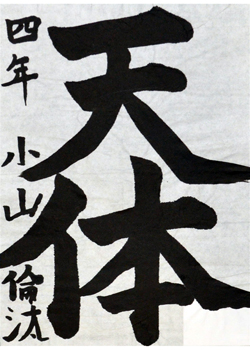 天体
四年 小山倫汰